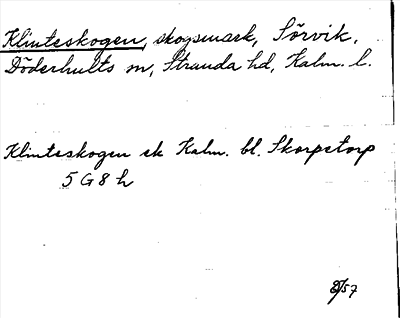 Klinteskogen, skogsmark, Sörvik,
Döderhults sn, Stranda hd, Kalm. l.
Klinteskogen ek Kalm. bl. Skorpetorp
5 G 8 h
/57